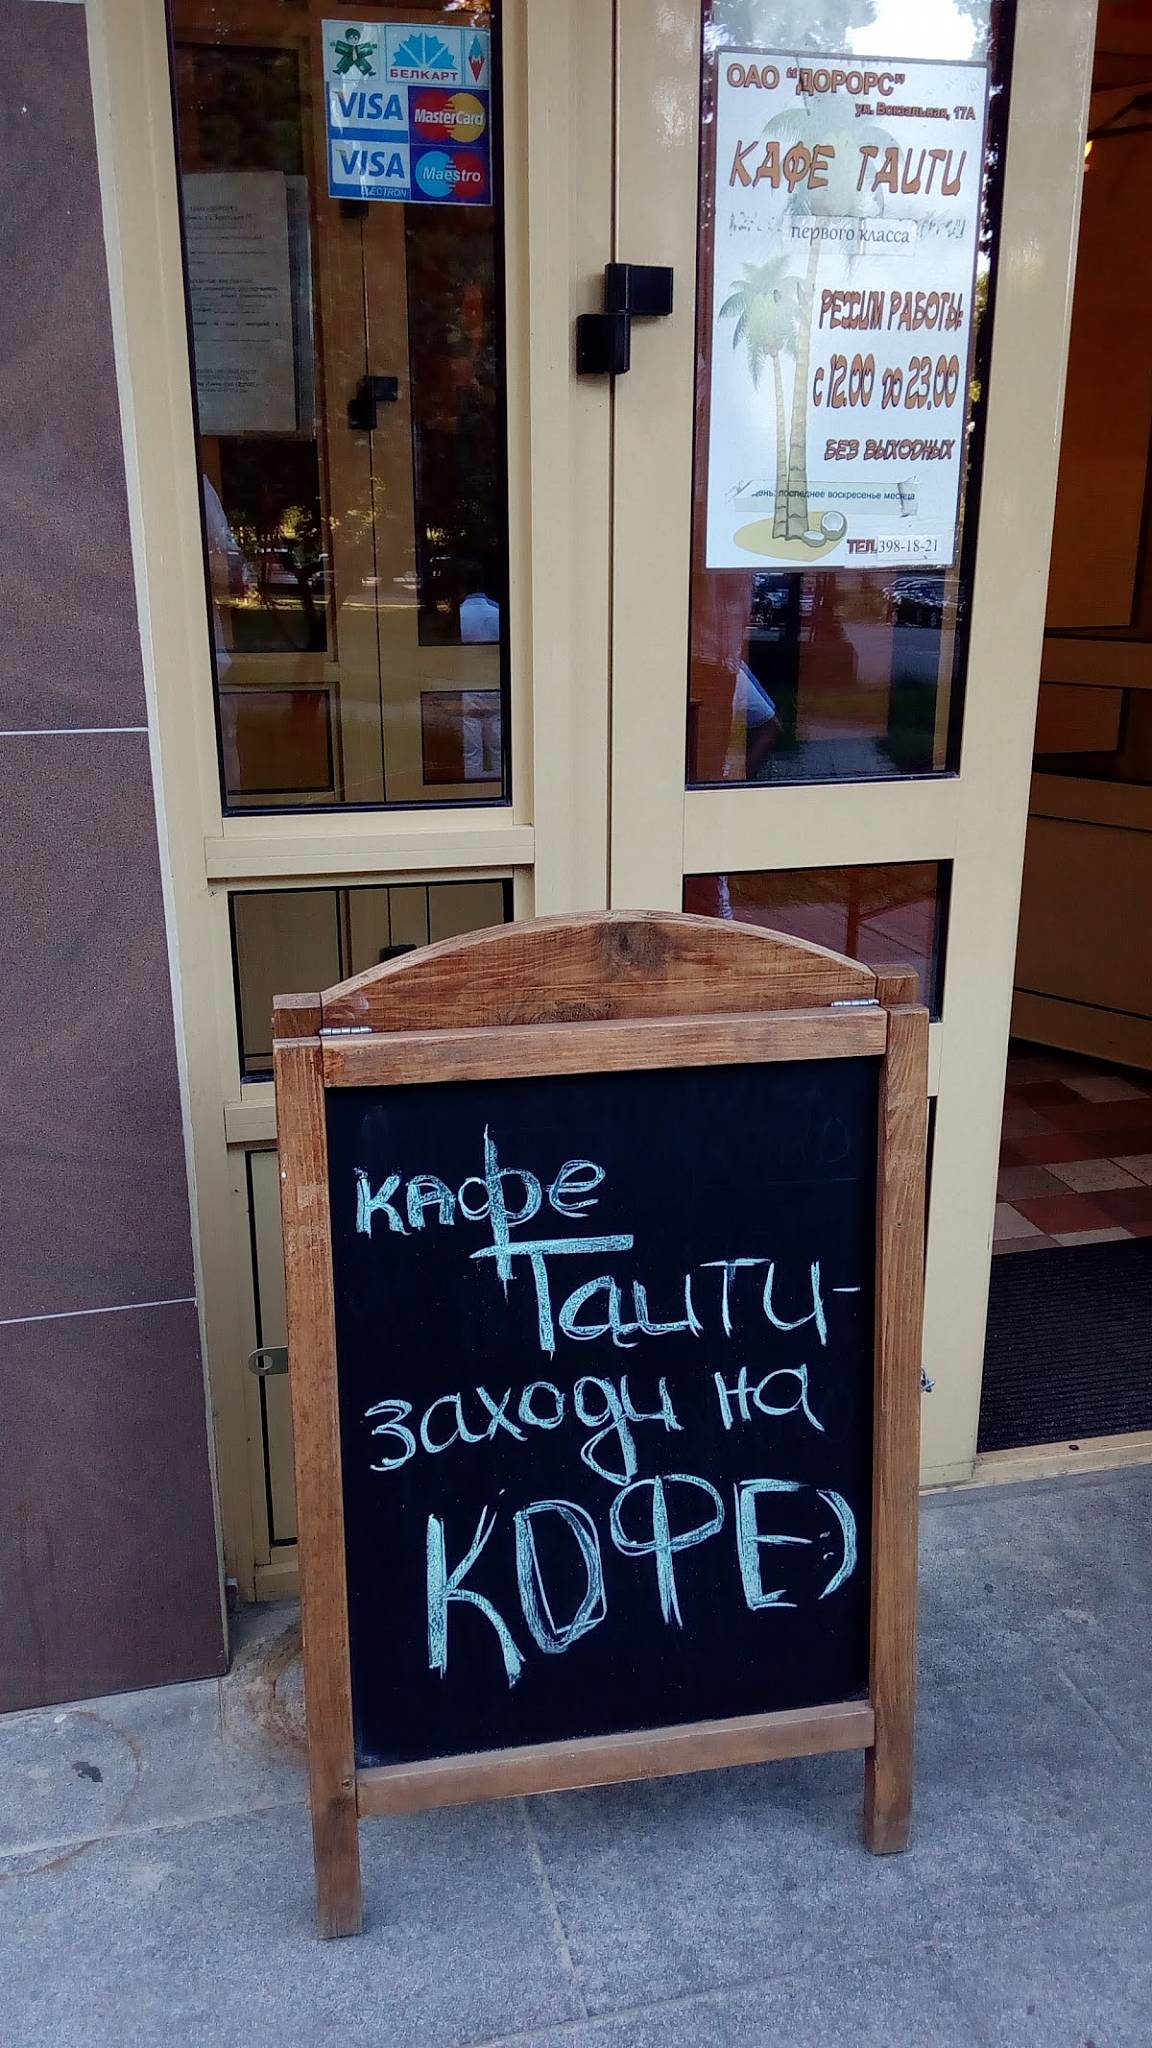 БЕЛКАРТ
VISA
MasterCard
VISA
ELECTRON
Maestro
ОАО "ДОРОРС"
ул. Вокзальная, 17А
КАФЕ ТАИТИ
первого класса
РЕЖИМ РАБОТЫ:
с 12.00 до 23.00
БЕЗ ВЫХОДНЫХ
день: последнее воскресенье месяца
ТЕЛ. 398-18-21
кафе
Таити-
заходи на
КОФЕ:)